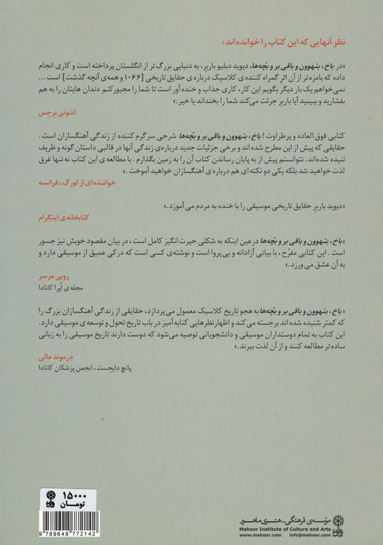 نظر آنهایی که این کتاب را خوانده‌اند:
«در باخ، بتهوون و باقی بر و بچّه‌ها، دیوید دبلیو باربر، به دنیایی بزرگ‌تر از انگلستان پرداخته است و کاری انجام
داده که بامزه‌تر از آن اثر گمراه کننده‌ی کلاسیک درباره‌ی حقایق تاریخی [۱۰۶۶ و همه‌ی آنچه گذشت] است ...
نمی‌خواهم یک بار دیگر بگویم این کار، کاری جذاب و خنده‌آور است تا شما را مجبور کنم دندان هایتان را به هم
بفشارید و ببینید آیا باربر جرئت می‌کند شما را بخنداند یا خیر.»
آنتونی برجس
کتابی فوق العاده و پرطراوت! باخ، بتهوون و باقی بر و بچّه‌ها شرحی سرگرم کننده از زندگی آهنگسازان است.
حقایقی که پیش از این مطرح شده‌اند و برخی جزئیات جدید درباره‌ی زندگی آنها در قالبی داستان گونه و ظریف
تنیده شده‌اند. نتوانستم پیش از به پایان رساندن کتاب آن را به زمین بگذارم. با مطالعه‌ی این کتاب نه تنها غرق
لذت خواهید شد بلکه یکی دو نکته‌ای هم درباره‌ی آهنگسازان خواهید آموخت.»
خواننده‌ای از لورگ، فرانسه
«دیوید باربر حقایق تاریخی موسیقی را با خنده به مردم می‌آموزد.»
کتابخانه‌ی اینگرام
«باخ، بتهوون و باقی بر و بچّه‌ها در عین اینکه به شکلی حیرت انگیز کامل است، در بیان مقصود خویش نیز جسور
است. این کتابی مفرّح، با بیانی آزادانه و بی‌پروا است و نوشته‌ی کسی است که درکی عمیق از موسیقی دارد و
به آن عشق می‌ورزد.»
روبی مرسر
مجله‌ی اُپرا کانادا
«باخ، بتهوون و باقی بر و بچّه‌ها به هجو تاریخ کلاسیک معمول می‌پردازد، حقایقی از زندگی آهنگسازان بزرگ را
که کمتر شنیده شده‌اند برجسته می‌کند و اظهارنظرهایی کنایه آمیز در باب تاریخ تحول و توسعه‌ی موسیقی دارد.
این کتاب به تمام دوستداران موسیقی و دانشجویانی توصیه می‌شود که دوست دارند تاریخ موسیقی را به زبانی
ساده‌تر مطالعه کنند و از آن لذت ببرند.»
دزموند مالی
پانچ دایجست، انجمن پزشکان کانادا
۱۵۰۰۰
تومان
9 789648 772142
مؤسسه‌ی فرهنگی - هنری ماهور
Mahoor Institute of Culture and Arts
info@mahoor.com www.mahoor.com